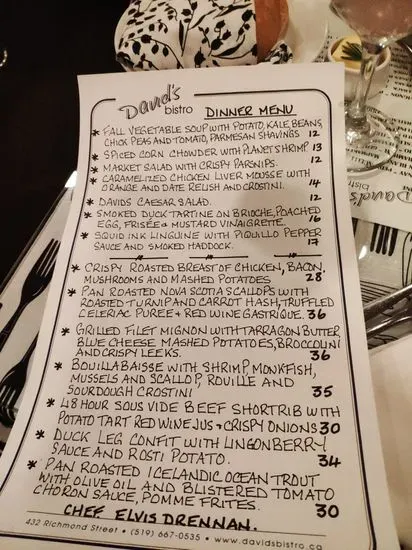 David's
bistro DINNER MENU
* FALL VEGETABLE SOUP WITH POTATO, KALE, BEANS,
CHICK PEAS AND TOMATO, PARMESAN SHAVINGS 12
* SPICED CORN CHOWDER WITH PLANET SHRIMP 13
* MARKET SALAD WITH CRISPY PARSNIPS. 12
* CARAMELIZED CHICKEN LIVER MOUSSE WITH
ORANGE AND DATE RELISH AND CROSTINI. 14
* DAVIDS CAESAR SALAD. 12
* SMOKED DUCK TARTINE ON BRIOCHE, POACHED
EGG, FRISÉE & MUSTARD VINAIGRETTE. 16
* SQUID INK LINGUINE WITH PIQUILLO PEPPER
SAUCE AND SMOKED HADDOCK. 17
* CRISPY ROASTED BREAST OF CHICKEN, BACON,
MUSHROOMS AND MASHED POTATOES 28
* PAN ROASTED NOVA SCOTIA SCALLOPS WITH
ROASTED TURNIP AND CARROT HASH, TRUFFLED
CELERIAC PUREE + RED WINE GASTRIQUE. 36
* GRILLED FILET MIGNON WITH TARRAGON BUTTER,
BLUE CHEESE MASHED POTATOES, BROCCOLINI
AND CRISPY LEEKS. 36
* BOUILLABAISSE WITH SHRIMP, MONKFISH,
MUSSELS AND SCALLOP, ROUILLE AND
SOURDOUGH CROSTINI 35
* 48 HOUR SOUS VIDE BEEF SHORTRIB WITH
POTATO TART RED WINE JUS + CRISPY ONIONS 30
* DUCK LEG CONFIT WITH LINGONBERRY
SAUCE AND ROSTI POTATO. 34
* PAN ROASTED ICELANDIC OCEAN TROUT
WITH OLIVE OIL AND BLISTERED TOMATO
CHORON SAUCE, POMME FRITES. 30
CHEF ELVIS DRENNAN.
432 Richmond Street • (519) 667-0535 • www.davidsbistro.ca
David's
bistro